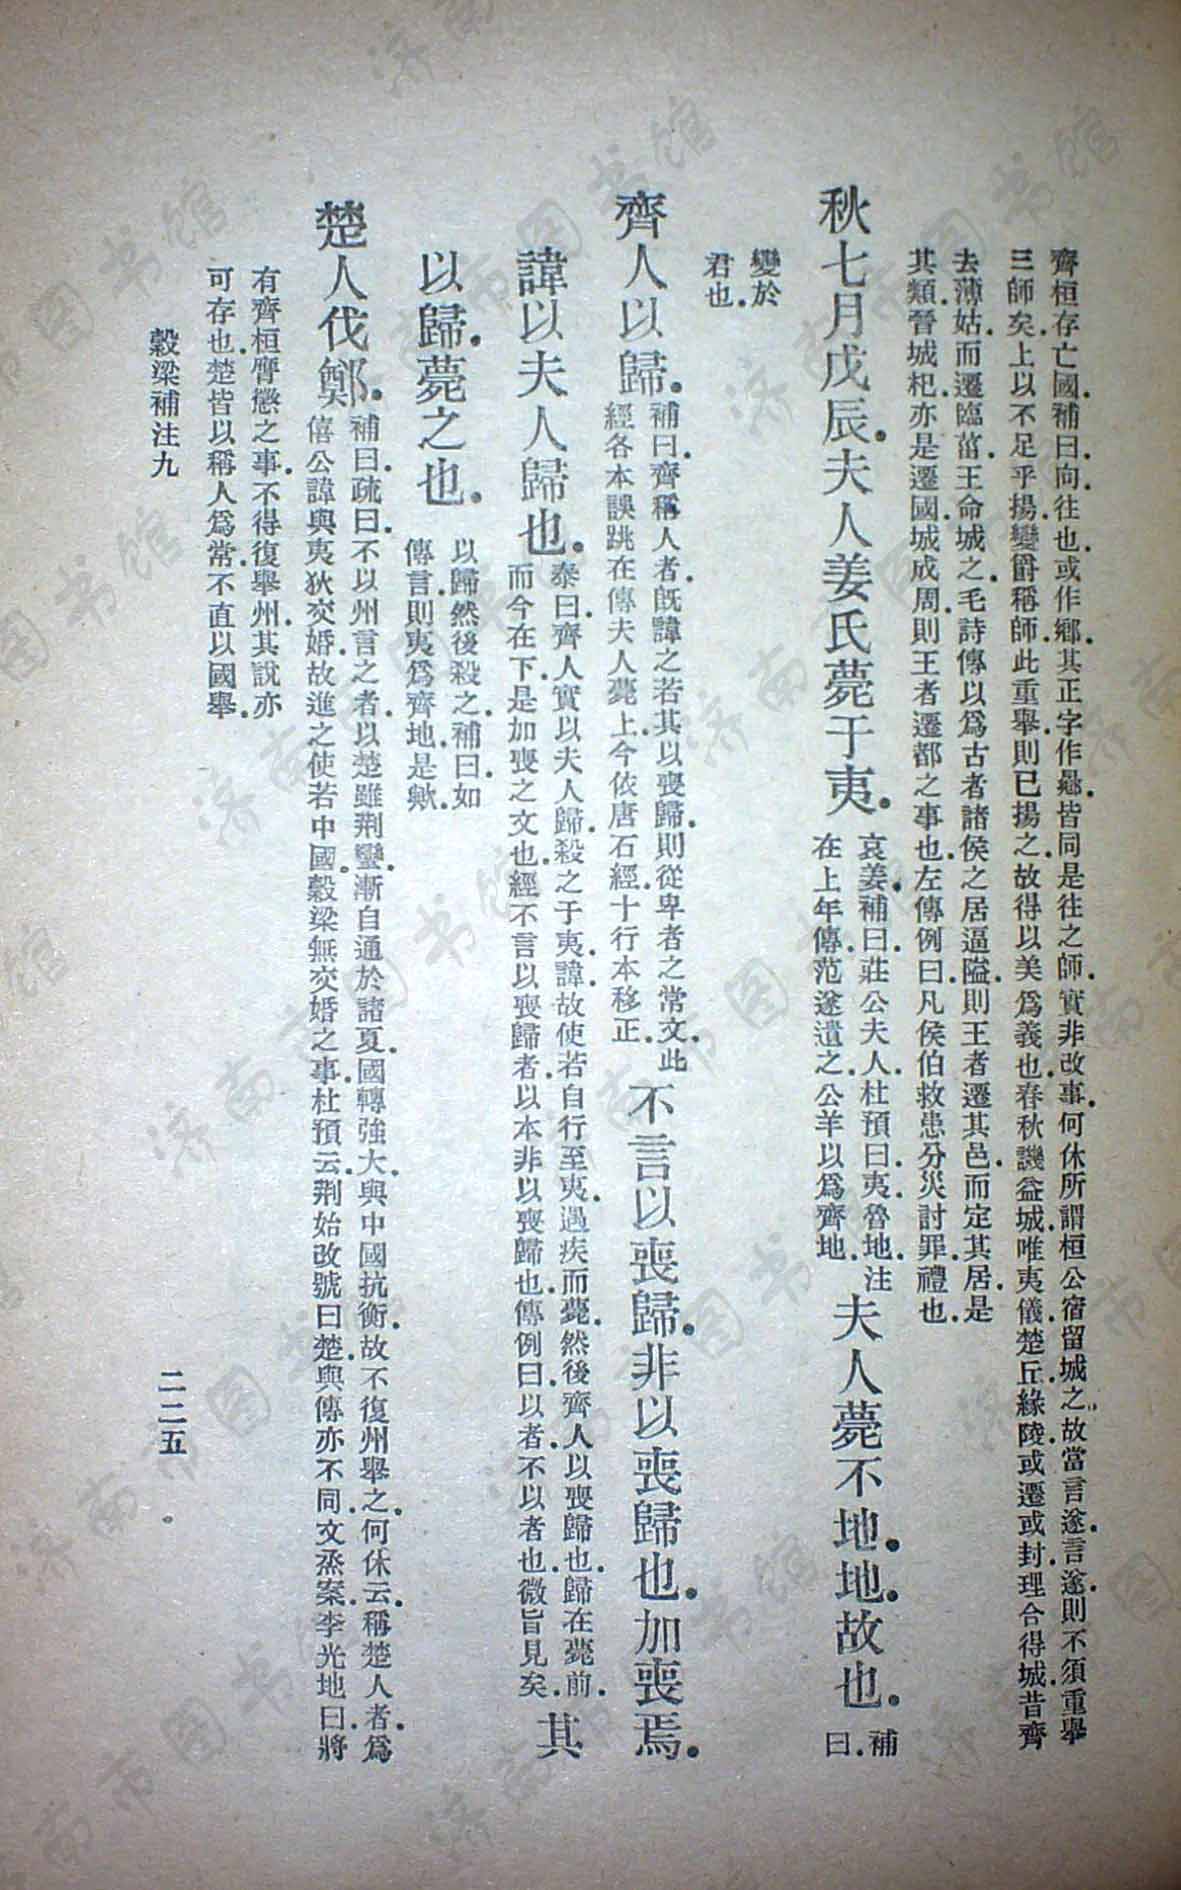 齊桓存亡國.補曰.向.往也.或作鄉.其正字作曏.皆同.是往之師.實非改事.何休所謂桓公宿留城之.故當言遂.言遂.則不須重舉
三師矣.上以不足乎揚.變爵稱師.此重舉.則已揚之.故得以美爲義也.春秋譏益城.唯夷儀.楚丘.緣陵.或遷或封.理合得城.昔齊
去薄姑.而遷臨菑.王命城之.毛詩傳以爲古者諸侯之居逼隘.則王者遷其邑而定其居.是
其類.晉城杞.亦是遷國.城成周.則王者遷都之事也.左傳例曰.凡侯伯救患分災討罪.禮也.
秋七月戊辰.夫人姜氏薨于夷.
哀姜.補曰.莊公夫人.杜預曰.夷.魯地.注
在上年傳.范遂遺之.公羊以爲齊地.
夫人薨不地.地.故也.
補
曰.
變於
君也.
齊人以歸.
補曰.齊稱人者.旣諱之.若其以喪歸.則從卑者之常文.此
經各本誤跳在傳夫人薨上.今依唐石經.十行本移正.
不言以喪歸.非以喪歸也.加喪焉.
諱以夫人歸也.
泰曰.齊人實以夫人歸.殺之于夷.諱.故使若自行至夷.遇疾而薨.然後齊人以喪歸也.歸在薨前.
而今在下.是加喪之文也.經不言以喪歸者.以本非以喪歸也.傳例曰.以者.不以者也.微旨見矣.
其
以歸.薨之也.
以歸然後殺之.補曰.如
傳言.則夷爲齊地.是歟.
楚人伐鄭.
補曰.疏曰.不以州言之者.以楚雖荆蠻.漸自通於諸夏.國轉強大.與中國抗衡.故不復州舉之.何休云.稱楚人者.爲
僖公諱與夷狄交婚.故進之使若中國.穀梁無交婚之事.杜預云.荆始改號曰楚.與傳亦不同.文烝案.李光地曰.將
有齊桓膺懲之事.不得復舉州.其說亦
可存也.楚皆以稱人爲常.不直以國舉.
穀梁補注九
二二五